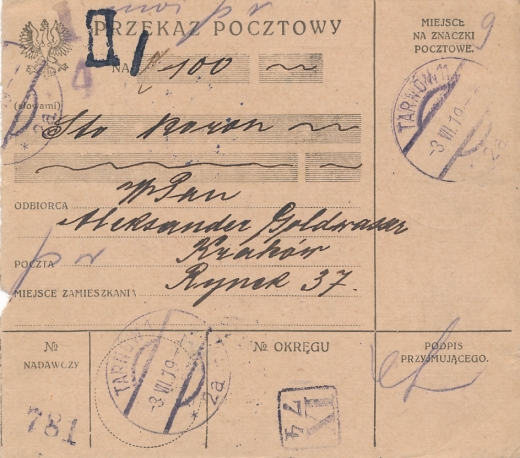 PRZEKAZ POCZTOWY
MIEJSCE
NA ZNACZKI
POCZTOWE.
9
NA K 100
4
(słowami)
Sto koron
TARNÓW 11
-3 VII. 19
2a
WPan
ODBIORCA
Aleksander Goldwasser
POCZTA
Kraków
MIEJSCE ZAMIESZKANIA
Rynek 37.
№
NADAWCZY
781
TARNÓW 11
-3 VII. 19
2a
№ OKRĘGU
IX
74
PODPIS
PRZYJMUJĄCEGO.